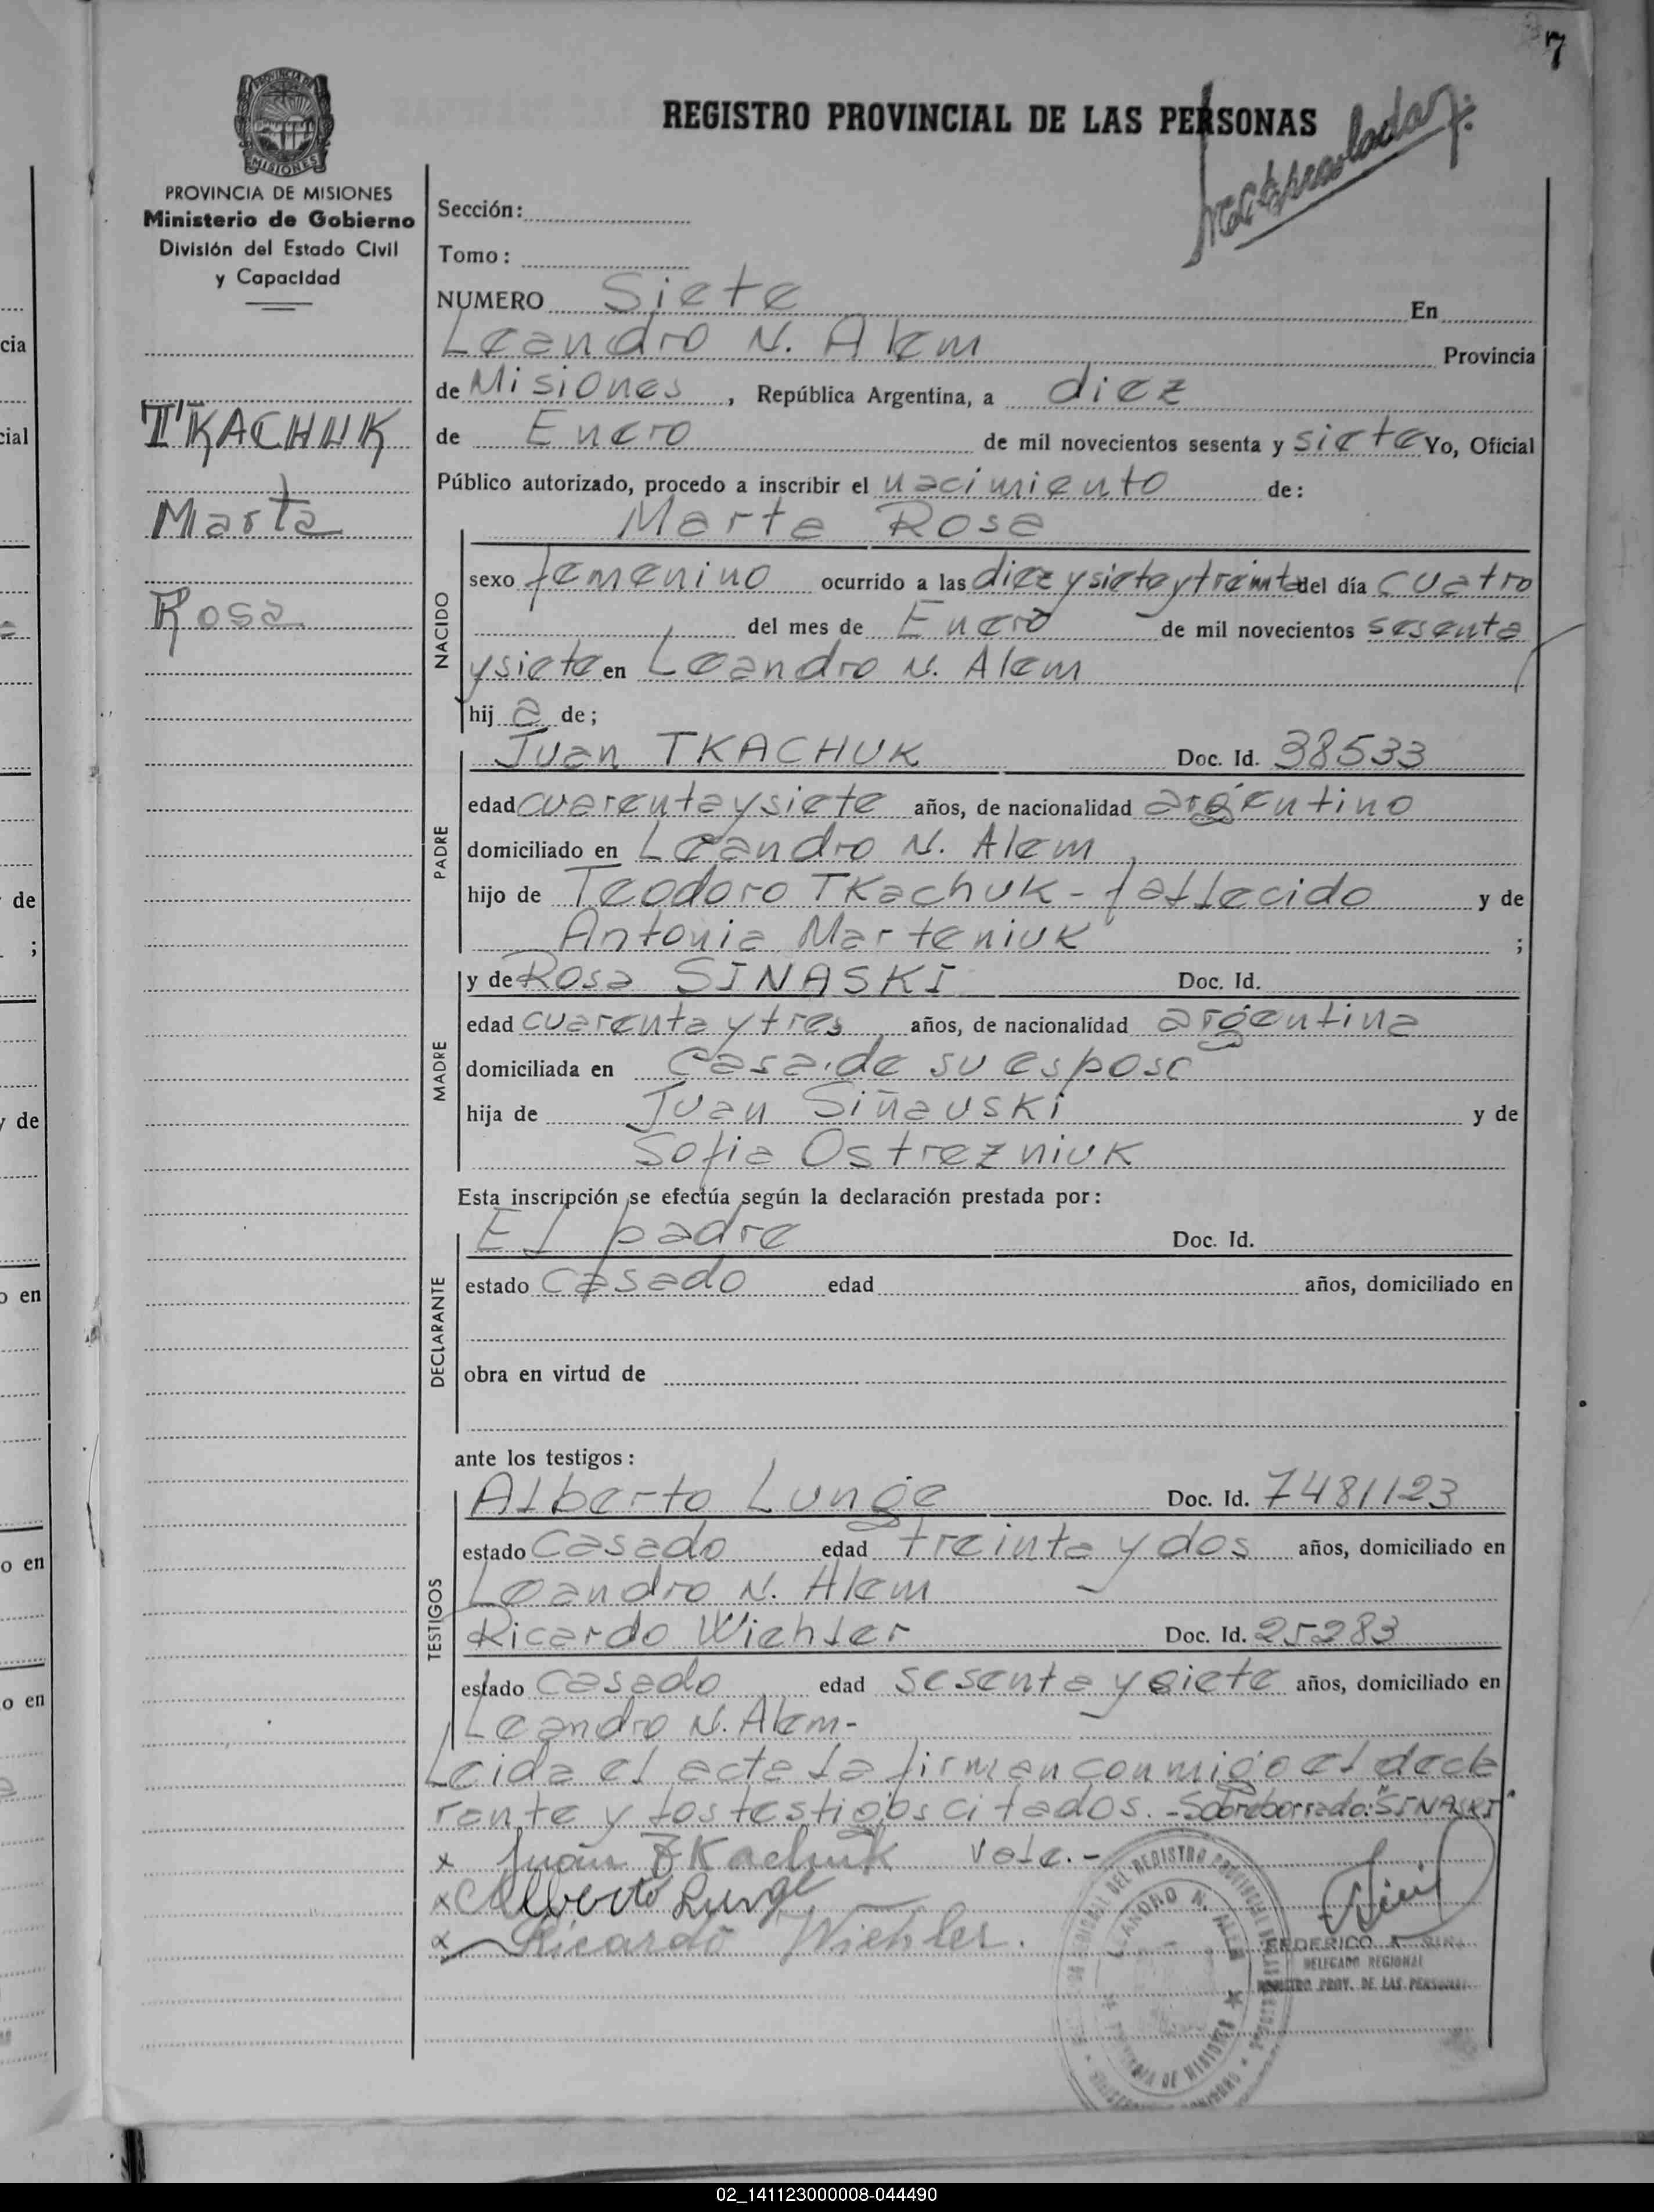 7
REGISTRO PROVINCIAL DE LAS PERSONAS
MISIONES
PROVINCIA DE MISIONES
Ministerio de Gobierno
División del Estado Civil
y Capacidad
TKACHUK
Marta
Rosa
Sección:
Tomo:
NUMERO Siete En
Leandro N. Alem Provincia
de Misiones, República Argentina, a diez
de Enero de mil novecientos sesenta y siete Yo, Oficial
Público autorizado, procedo a inscribir el nacimiento de:
Marta Rosa
NACIDO
sexo femenino ocurrido a las diez y siete y treinta del día cuatro
del mes de Enero de mil novecientos sesenta
y siete en Leandro N. Alem
hij a de;
PADRE
Juan TKACHUK Doc. Id. 38533
edad cuarenta y siete años, de nacionalidad argentino
domiciliado en Leandro N. Alem
hijo de Teodoro Tkachuk - fallecido y de
Antonia Marteniuk ;
MADRE
y de Rosa SINASKI Doc. Id.
edad cuarenta y tres años, de nacionalidad argentina
domiciliada en casa de su esposo
hija de Juan Siñauski y de
Sofia Ostrezniuk
Esta inscripción se efectúa según la declaración prestada por:
DECLARANTE
El padre Doc. Id.
estado casado edad años, domiciliado en
obra en virtud de
ante los testigos:
TESTIGOS
Alberto Lunge Doc. Id. 7481123
estado casado edad treinta y dos años, domiciliado en
Leandro N. Alem
Ricardo Wiehler Doc. Id. 25283
estado casado edad sesenta y siete años, domiciliado en
Leandro N. Alem-
Leida el acta la firman conmigo el decla
rante y los testigos citados. - Sobreborrado: "SINASKI"
x Juan Tkachuk Vale.-
x Alberto Lunge
x Ricardo Wiehler.
LEANDRO N. ALEM
PROVINCIA DE MISIONES
FEDERICO
DELEGADO REGIONAL
REGISTRO PROV. DE LAS PERSONAS
cia
cial
de
;
y de
o en
o en
o en
02_141123000008-044490